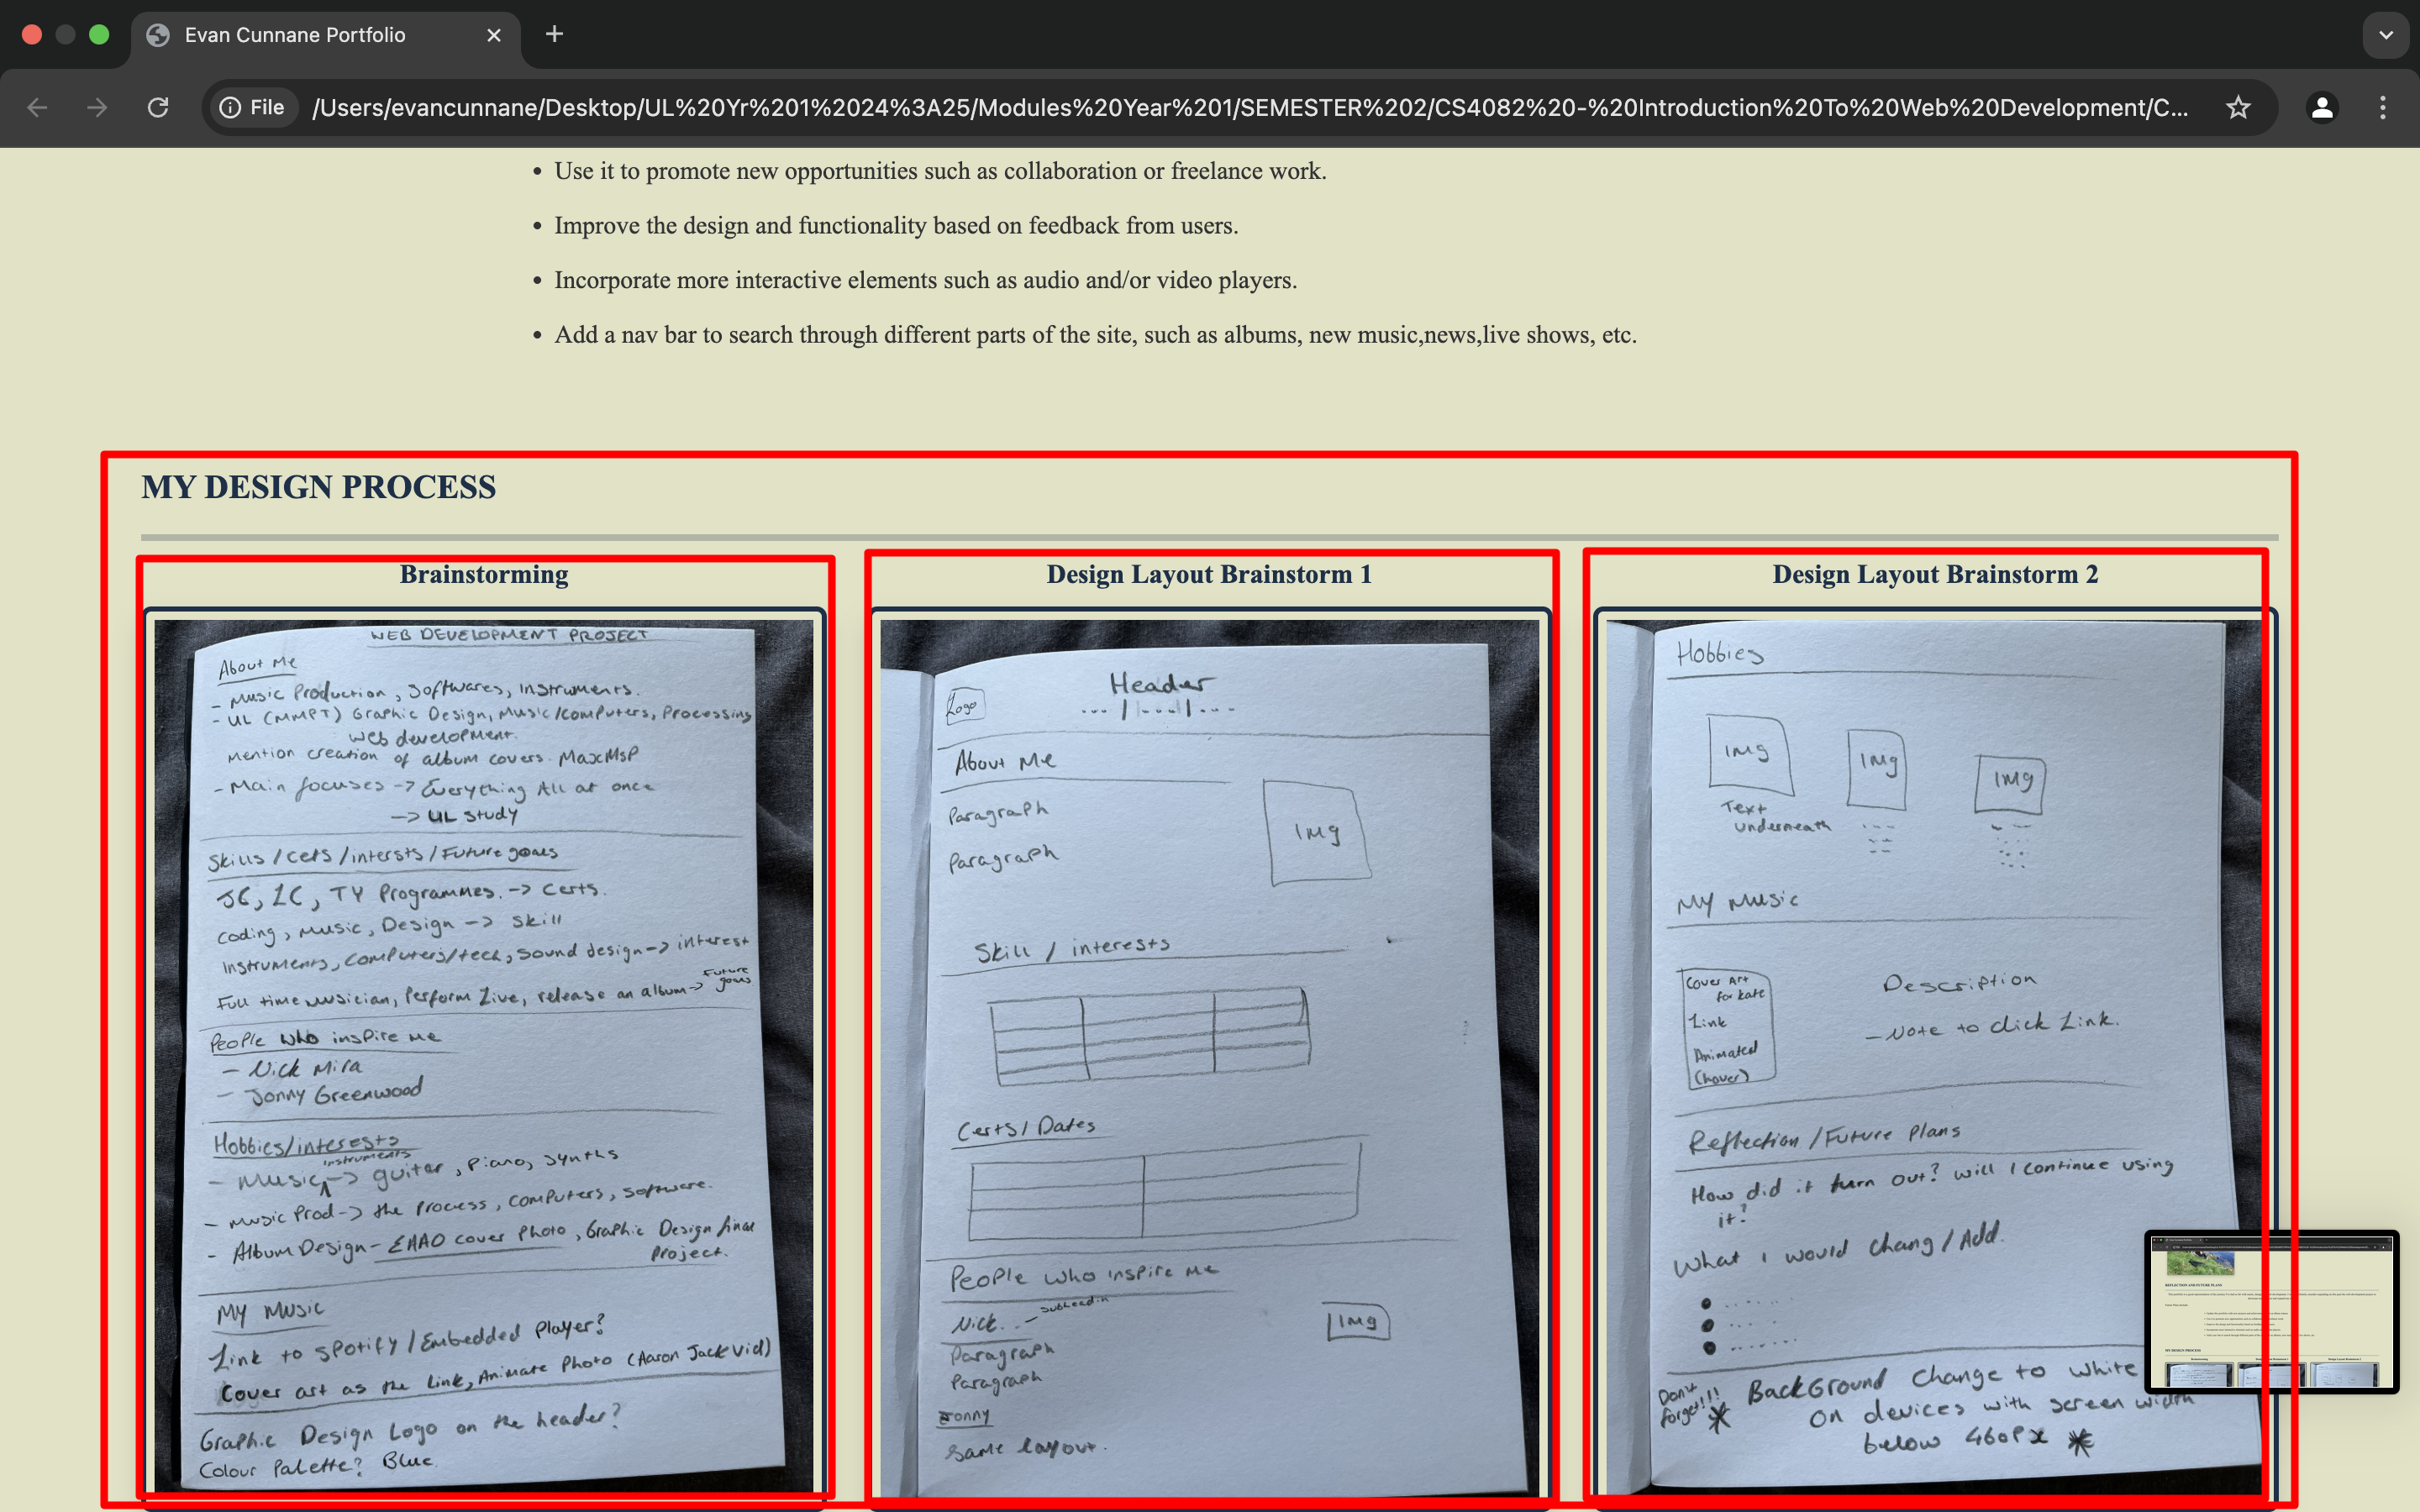 Evan Cunnane Portfolio
File /Users/evancunnane/Desktop/UL%20Yr%201%2024%3A25/Modules%20Year%201/SEMESTER%202/CS4082%20-%20Introduction%20To%20Web%20Development/C...
• Use it to promote new opportunities such as collaboration or freelance work.
• Improve the design and functionality based on feedback from users.
• Incorporate more interactive elements such as audio and/or video players.
• Add a nav bar to search through different parts of the site, such as albums, new music,news,live shows, etc.
MY DESIGN PROCESS
Brainstorming
WEB DEVELOPMENT PROJECT
About Me
- Music Production, Softwares, Instruments.
- UL (MMPT) Graphic Design, Music/computers, Processing
Web development.
Mention creation of album covers. MaxMsP
- Main focuses -> Everything All at once
-> UL study
Skills/certs/intersts/Future goals
JC, LC, TY Programmes. -> Certs.
Coding, Music, Design -> Skill
Instruments, Computers/tech, Sound design -> interest
Full time musician, Perform Live, release an album -> Future goals
People who inspire me
- Nick Mira
- Jonny Greenwood
Hobbies/interests
- Music instruments -> guitar, Piano, Synths
- Music Prod -> the Process, Computers, Software.
- Album Design - EAAO cover Photo, Graphic Design final
Project.
My Music
Link to Spotify/Embedded Player?
Cover art as the Link, Animate Photo (Aaron Jack vid)
Graphic Design Logo on the header?
Colour Palette? Blue
Design Layout Brainstorm 1
Logo
Header
... | ... | ...
About Me
Paragraph
Paragraph
Img
Skill / interests
Certs/Dates
People who inspire me
Nick... -
Img
Paragraph
Paragraph
Jonny
Same layout.
Design Layout Brainstorm 2
Hobbies
Img
Img
Img
Text
underneath
My Music
Cover Art
for Kate
Link
Animated
(hover)
Description
- Note to click Link.
Reflection/Future Plans
How did it turn out? Will I continue using
it?
What I would chang/Add.
Don't
forget!!!
BackGround Change to white
on devices with screen width
below 460Px
REFLECTION AND FUTURE PLANS
MY DESIGN PROCESS